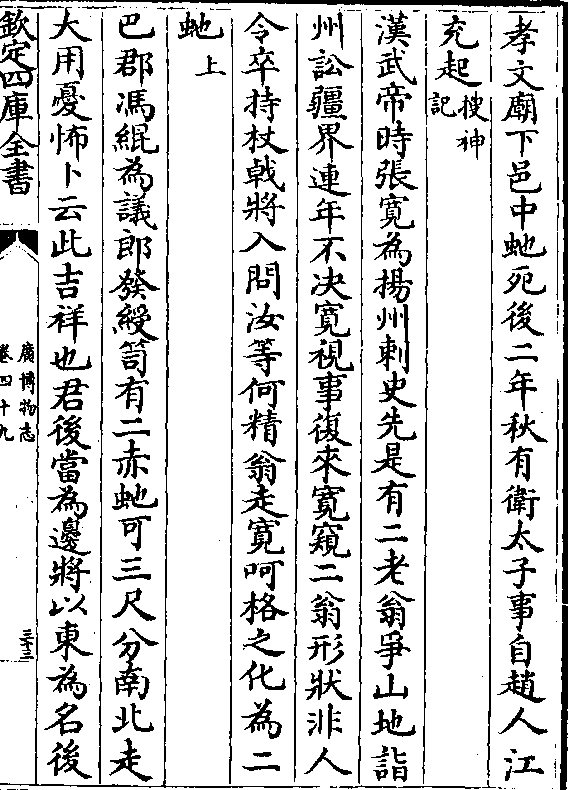 孝文廟下邑中虵死後二年秋有衛太子事自趙人江
充起搜神記
漢武帝時張寛為揚州刺史先是有二老翁爭山地詣
州訟疆界連年不決寛視事復來寛窺二翁形狀非人
令卒持杖戟將入問汝等何精翁走寛呵格之化為二
虵上
巴郡馮緄為議郎發綬笥有二赤虵可三尺分南北走
大用憂怖卜云此吉祥也君後當為邊將以東為名後
欽定四庫全書
廣博物志
卷四十九
三十三